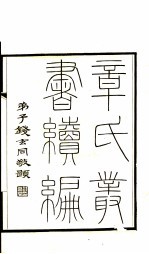 章氏叢
書續編
弟子錢玄同敬題